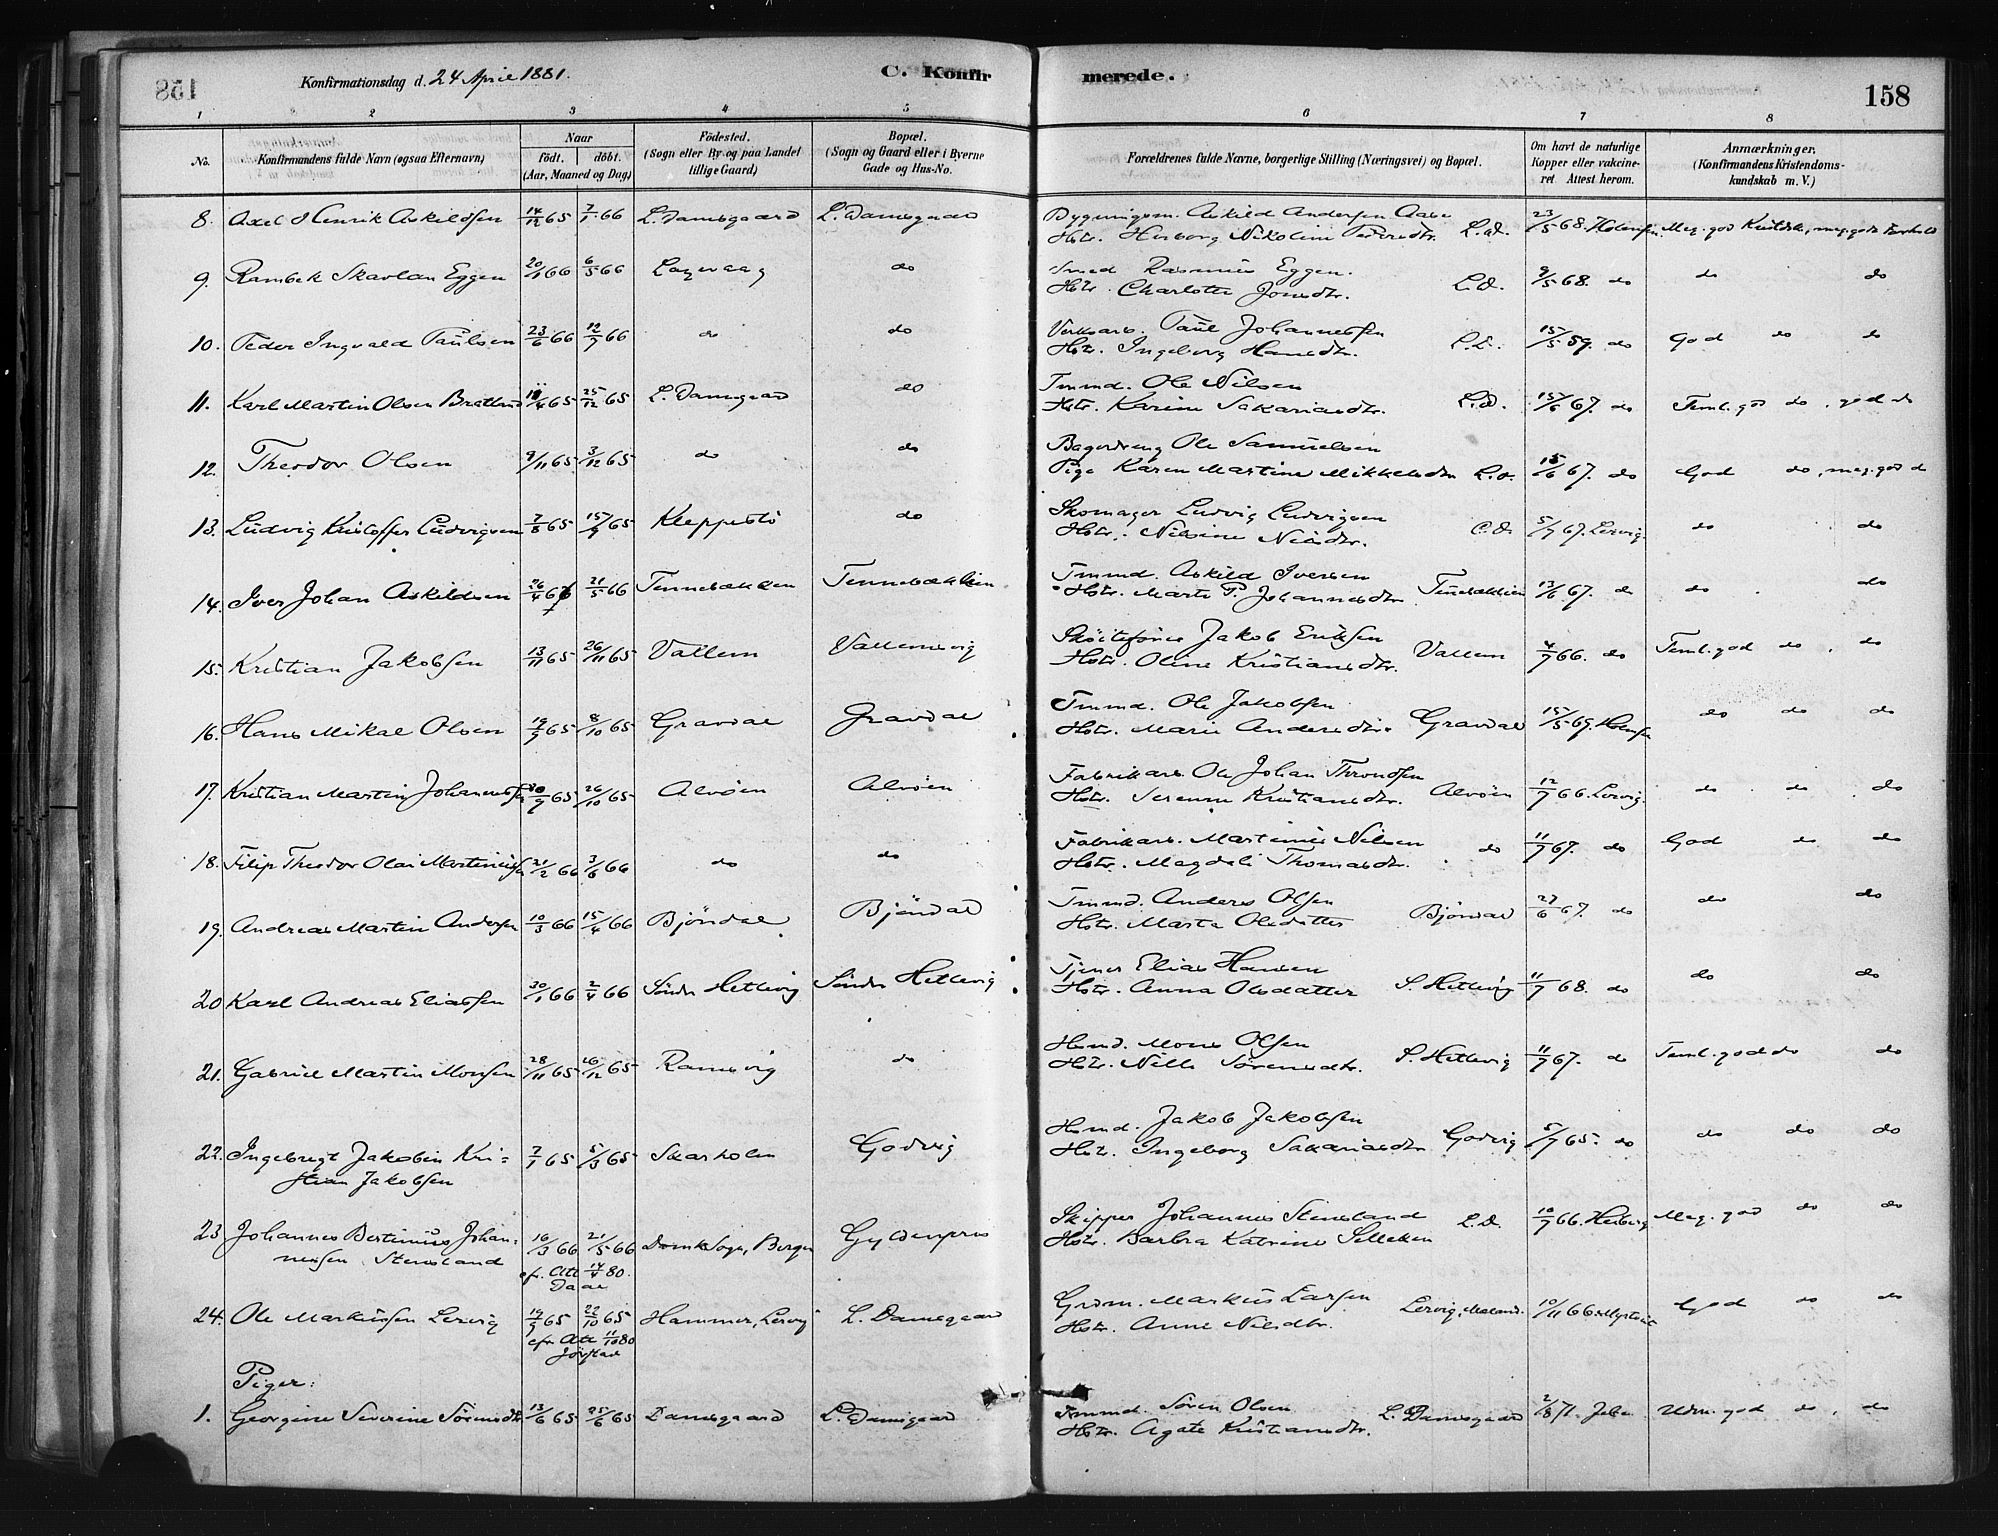 158
Konfirmationsdag d. 24 April 1881.
C. Konfirmerede.
158
1 2 3 4 5 6 7 8
No.
Konfirmandens fulde Navn (ogsaa Efternavn)
Naar
født. døbt.
(Aar, Maaned og Dag)
Fødested.
(Sogn eller By og paa Landet
tillige Gaard)
Bopæl.
(Sogn og Gaard eller i Byerne
Gade og Hus-No.
Forældrenes fulde Navne, borgerlige Stilling (Næringsvei) og Bopæl.
Om havt de naturlige
Kopper eller vakcine-
ret Attest herom.
Anmærkninger.
(Konfirmandens Kristendoms-
kundskab m. V.)
8. Axel Henrik Askildsen 14/12 65 7/1 66 L. Damsgaard L. Damsgaard Bygningsm. Askild Andersen Aase
Hstr. Herborg Nikoline Pedersdtr. L.D. 23/5 68.
9. Rambek Skavlan Eggen 20/1 66 6/5 66 Laxevaag do Smed Rasmus Eggen.
Hstr. Charlotte Jonsdtr. L.D. 9/5 68. do do do
10. Peder Ingvald Paulsen 23/6 66 12/7 66 do do Verksarb. Paul Johannessen
Hstr. Ingeborg Hansdtr. L.D. 15/5 59. do God do do
11. Karl Martin Olsen 25/12 65 L. Damsgaard do Tmmd. Ole Nilsen
Hstr. Karine Sakariasdtr. L.D. 15/6 67. do Teml. god do, god do
12. Theodor Olsen 9/11 65 3/12 65 do do Bagerdreng Ole Samuelsen
Pige Karen Martine Mikkelsdtr L.D. 15/6 67. do God do, meg. god d
13. Ludvig Kristoffer Ludvigsen 7/8 65 15/9 65 Kleppestö do Skomager Ludvig Ludvigsen
Hstr. Nilsine Nilsdtr. L.D. 5/7 67. Lervig. do do
14. Iver Johan Askildsen 26/4 66 21/5 66 Tennebækken Tennebækken Tmmd. Askild Iversen
Hstr. Marte P. Johannesdtr Tennebækken 13/6 67. do do do
15. Kristian Jakobsen 13/11 65 26/11 65 Vallem Vallemsvig Skøiteförer Jakob Eriksen
Hstr. Oline Kristiansdtr. Vallem 4/7 66. do Teml. god do, do
16. Hans Mikal Olsen 19/9 65 8/10 65 Gravdal Gravdal Tmmd. Ole Jakobsen
Hstr. Marie Andersdtr. Gravdal 15/5 69. do do do
17. Kristian Martin Johannessen 26/10 65 Alvöen Alvöen Fabrikarb. Ole Johan Throndsen
Hstr. Serenne Kristiansdtr. Alvöen 12/7 66. Lervig. do do do
18. Filip Theodor Olai 21/2 66 3/6 66 do do Fabrikarb. Martinus Nilsen
Hstr. Magdeli Thomasdtr. do 11/7 67. do God do do
19. Andreas Martin Andersen 10/3 66 15/4 66 Bjöndal Bjöndal Tmmd. Anders Olsen
Hstr. Marta Olsdatter Bjöndal 27/6 67. do do do
20 Karl Andreas Eliassen 30/1 66 2/4 66 Söndr Hetlevig Söndr Hetlevig Tjener Elias Hansen
Hstr. Anna Olsdatter S. Hetlevig 11/7 68. do do do
21. Gabriel Martin Monsen 28/11 65 26/12 65 Ramsvig do Hsmd. Mons Olsen
Hstr. Nille Sörensdtr. S. Hetlevig 11/7 67. do Teml. god do do
22. Ingebregt Jakobin Kri=
stian Jakobsen 7/1 65 5/3 65 Skarholm Godvig Hsmd. Jakob Jakobsen
Hstr. Ingeborg Sakariasdtr Godvig 5/7 65. do do do do
23 Johannes Bertinius Johan=
nessen Stensland 16/3 66 21/5 66 Domk Sogn, Bergen Gyldenpris Skipper Johannes Stensland
Hstr. Barbra Katrine Selleken L.D. 10/7 66. Heiberg Meg. god do do
cfr. Att 14/4 80.
Daae
24. Ole Markussen Lervig 19/9 65 22/10 65 Hammer, Lervig L. Damsgaard Grdm. Markus Larsen
Hstr. Anne Nilsdtr. Lervig, 10/11 66 God do do
cfr. Att 11/10 80
Jörstad
Piger:
1. Georgine Severine Sörensdtr 13/6 65 25/6 65 Damsgaard L. Damsgaard Tmmd. Sören Olsen
Hstr. Agate Kristiansdtr. L. Damsgaard 2/8 71. Udm. god do, do